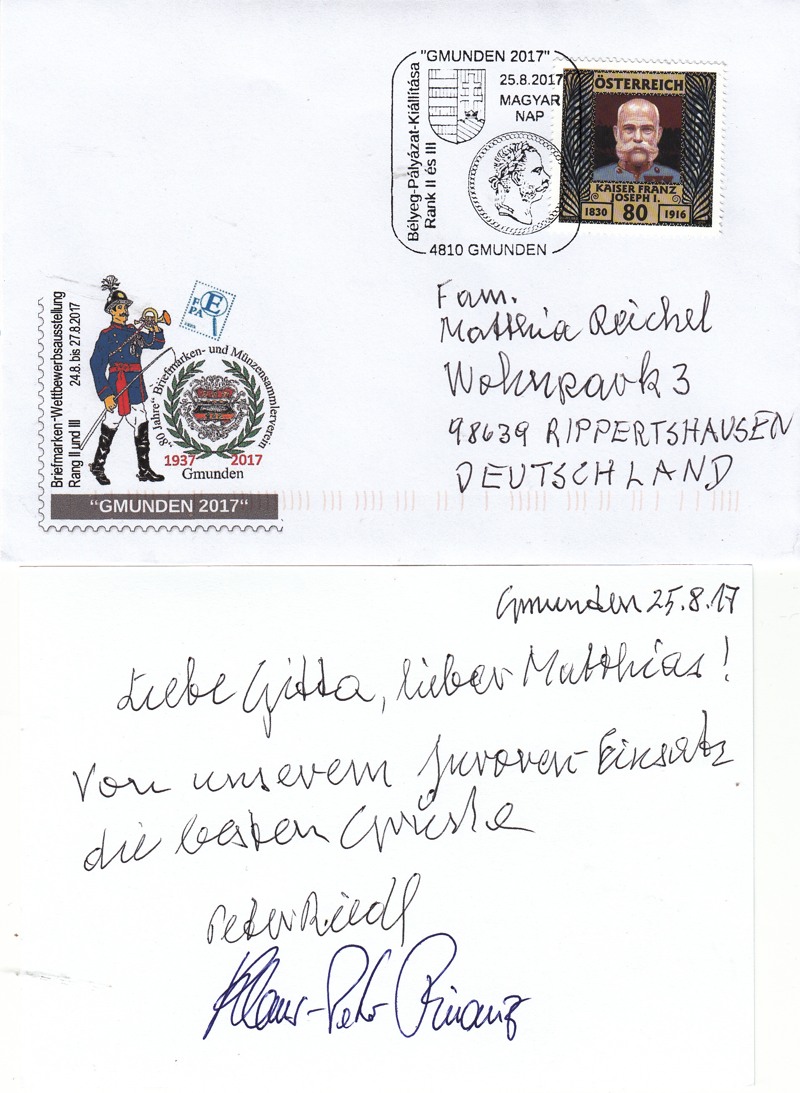 "GMUNDEN 2017"
25.8.2017
MAGYAR
NAP
Bélyeg-Pályázat-Kiállítása
Rank II és III
4810 GMUNDEN
ÖSTERREICH
KAISER FRANZ
JOSEPH I.
1830 80 1916
Fam.
Matthia Reichel
Wohnpark 3
98639 RIPPERTSHAUSEN
DEUTSCHLAND
Briefmarken-Wettbewerbsausstellung
Rang II und III 24.8. bis 27.8.2017
FEPA
„80 Jahre" Briefmarken- und Münzensammlerverein
1937 2017
Gmunden
"GMUNDEN 2017"
Gmunden 25.8.17
Liebe Gitta, lieber Matthias!
Von unserem Juroren-Einsatz
die besten Grüsse
Peter Riedl
Klaus-Peter